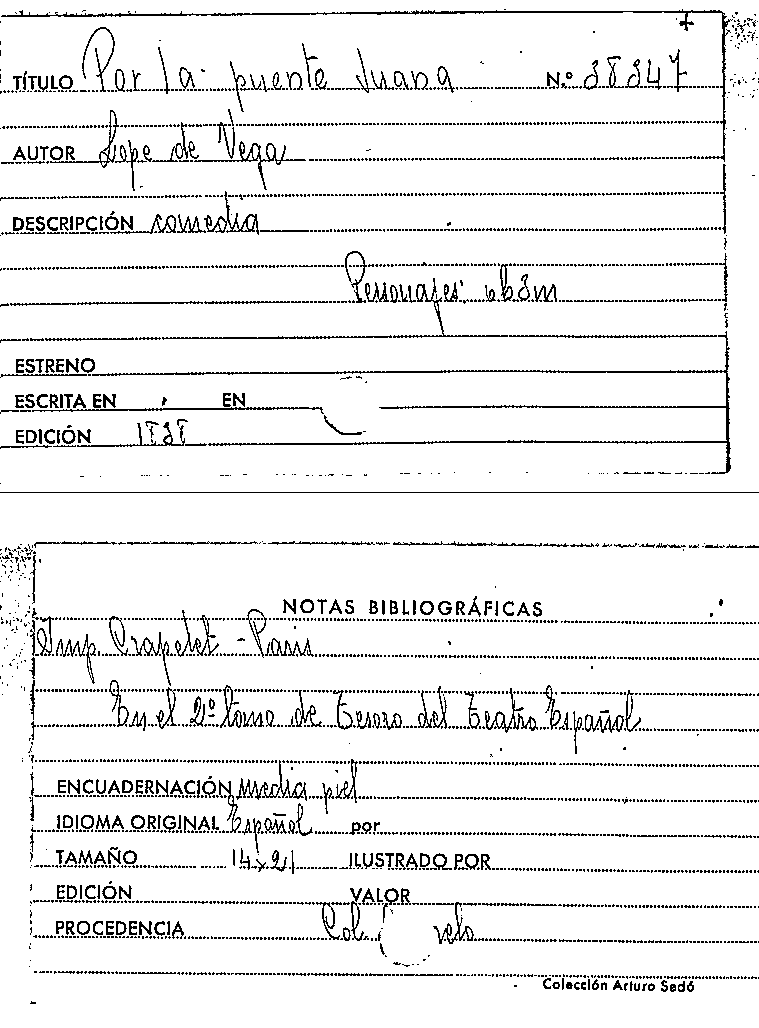 TÍTULO Por la puente Juana N.º 38347
AUTOR Lope de Vega
DESCRIPCIÓN comedia
Personajes: 6h3m
ESTRENO
ESCRITA EN EN
EDICIÓN 1838
NOTAS BIBLIOGRÁFICAS
Imp. Crapelet - Paris
En el 2º tomo de Tesoro del Teatro Español
ENCUADERNACIÓN media piel
IDIOMA ORIGINAL Español por
TAMAÑO 14x21 ILUSTRADO POR
EDICIÓN VALOR
PROCEDENCIA Col.
Colección Arturo Sedó